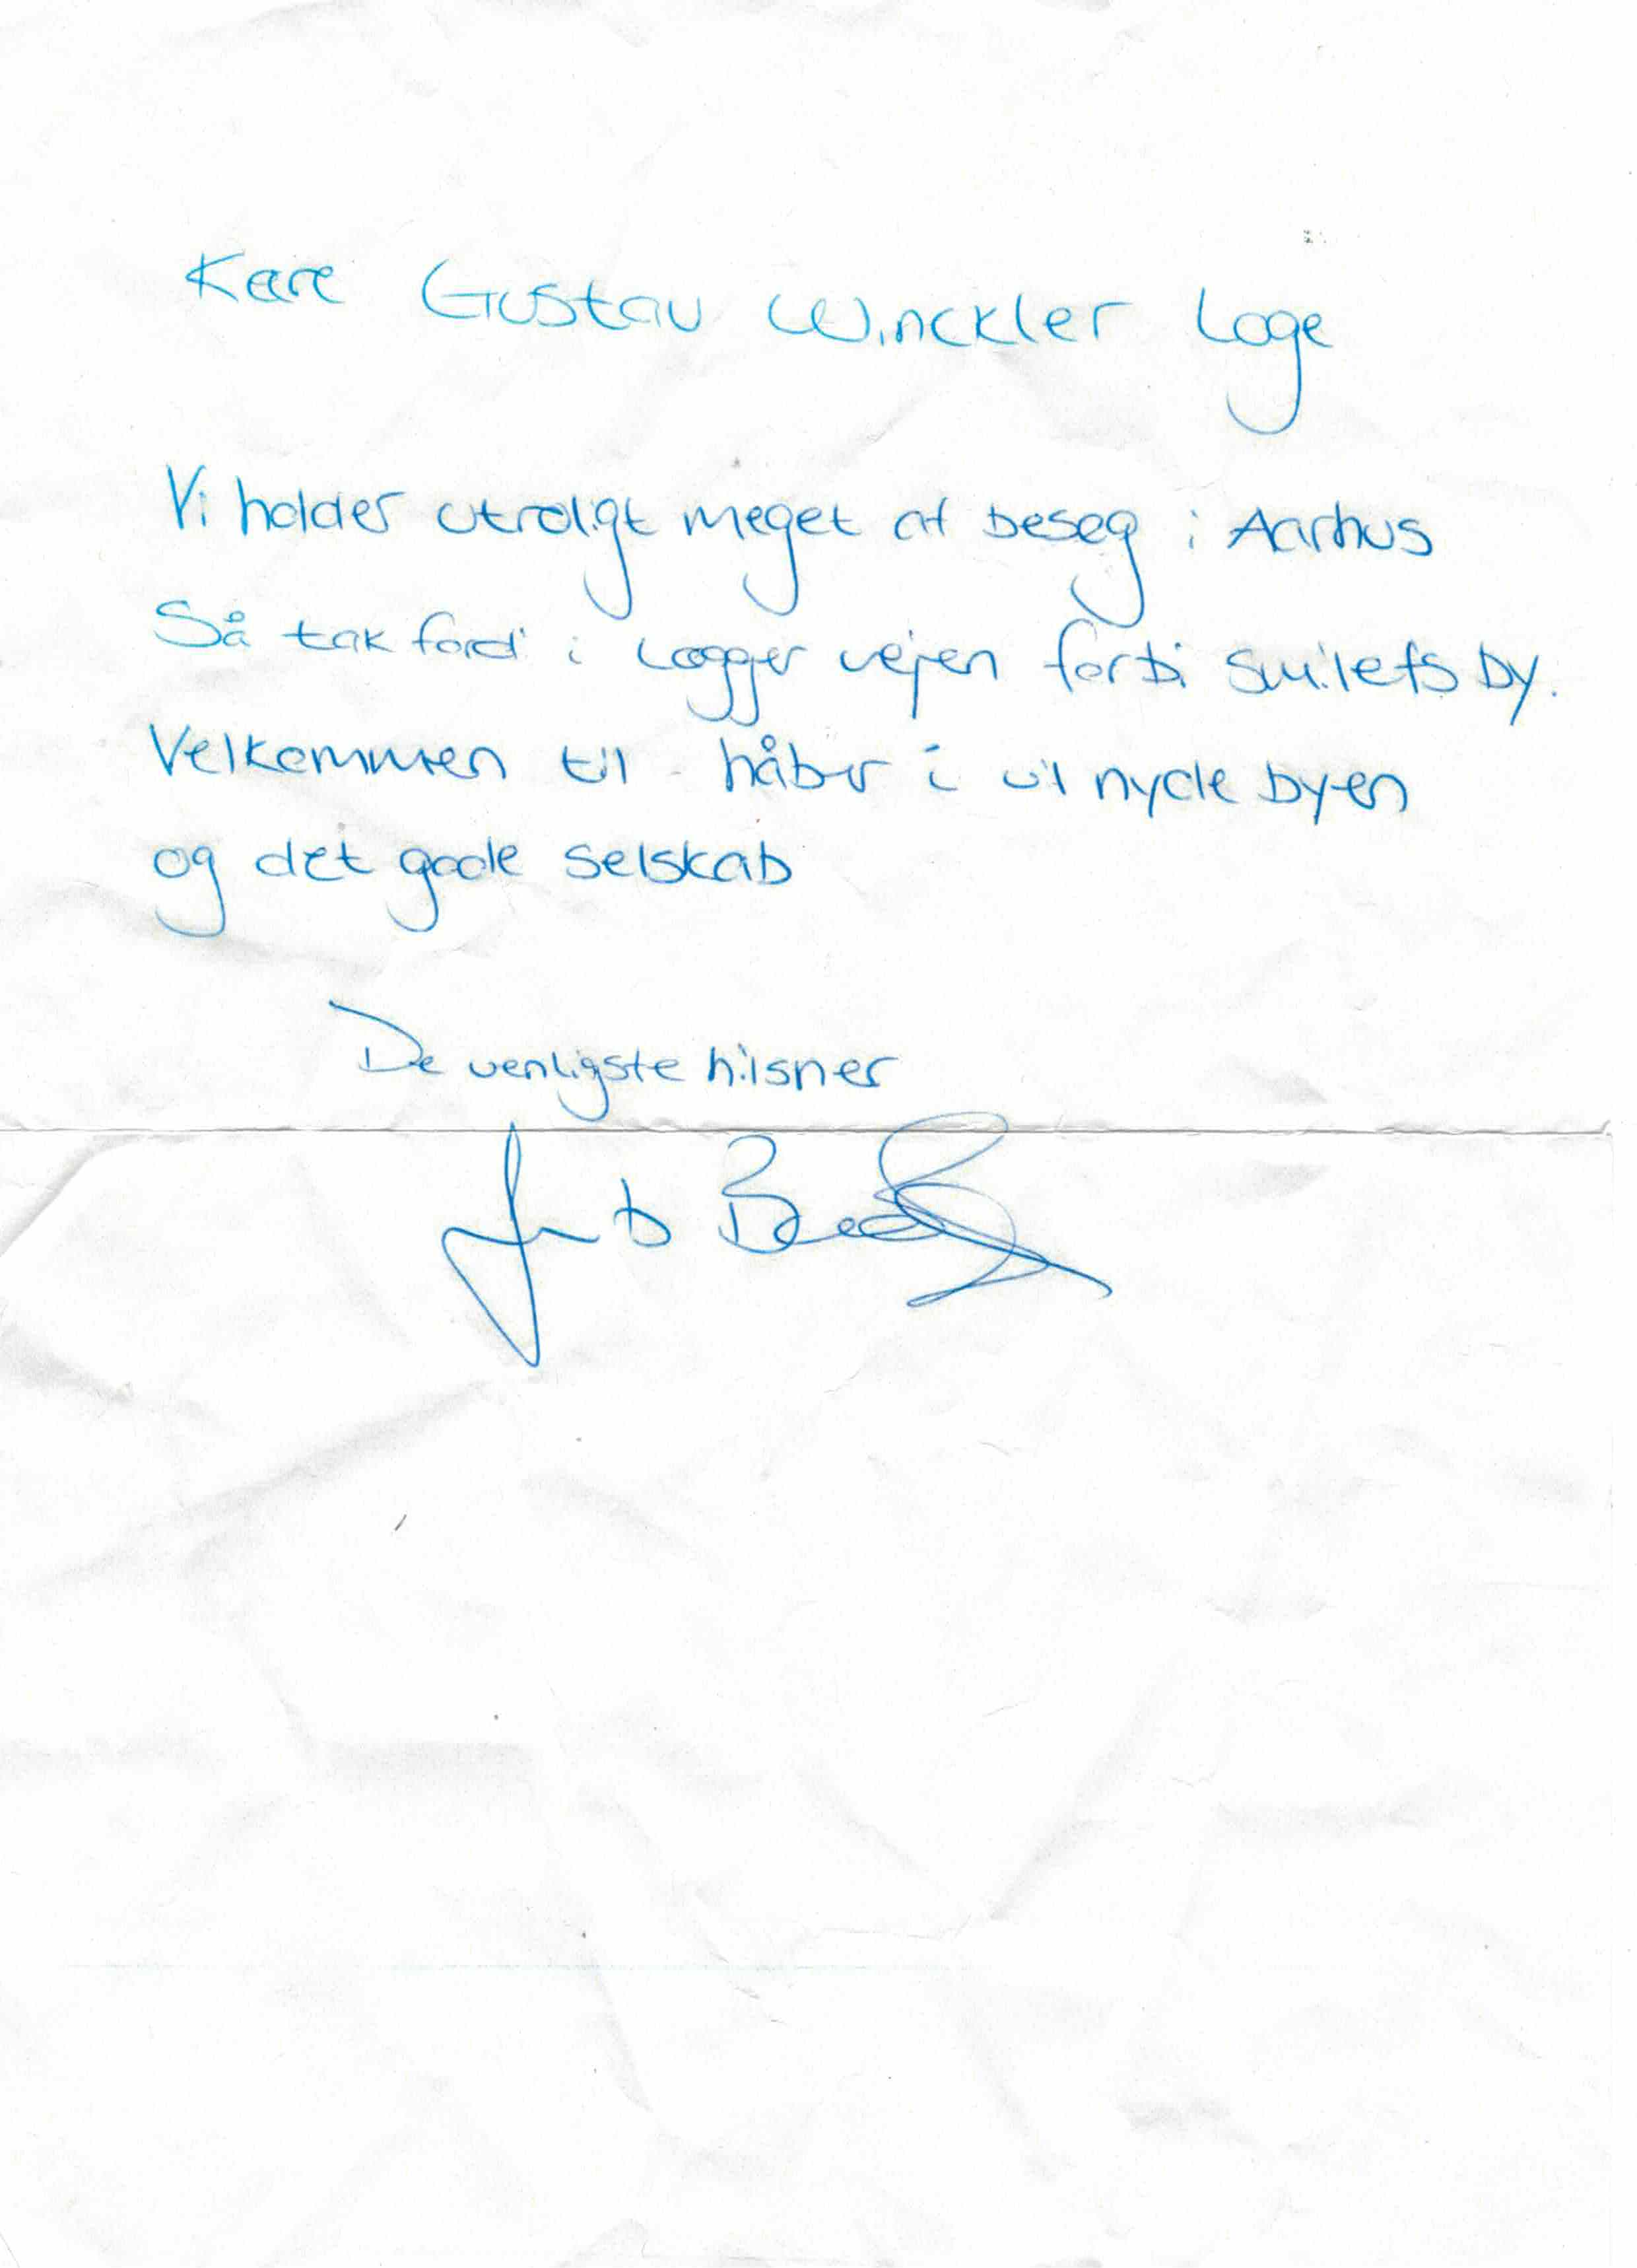 Kære Gustav Winckler Loge
Vi holder utroligt meget af besøg i Aarhus
Så tak fordi i lægger vejen forbi smilets by.
Velkommen til - håber i vil nyde byen
og det gode selskab
De venligste hilsner